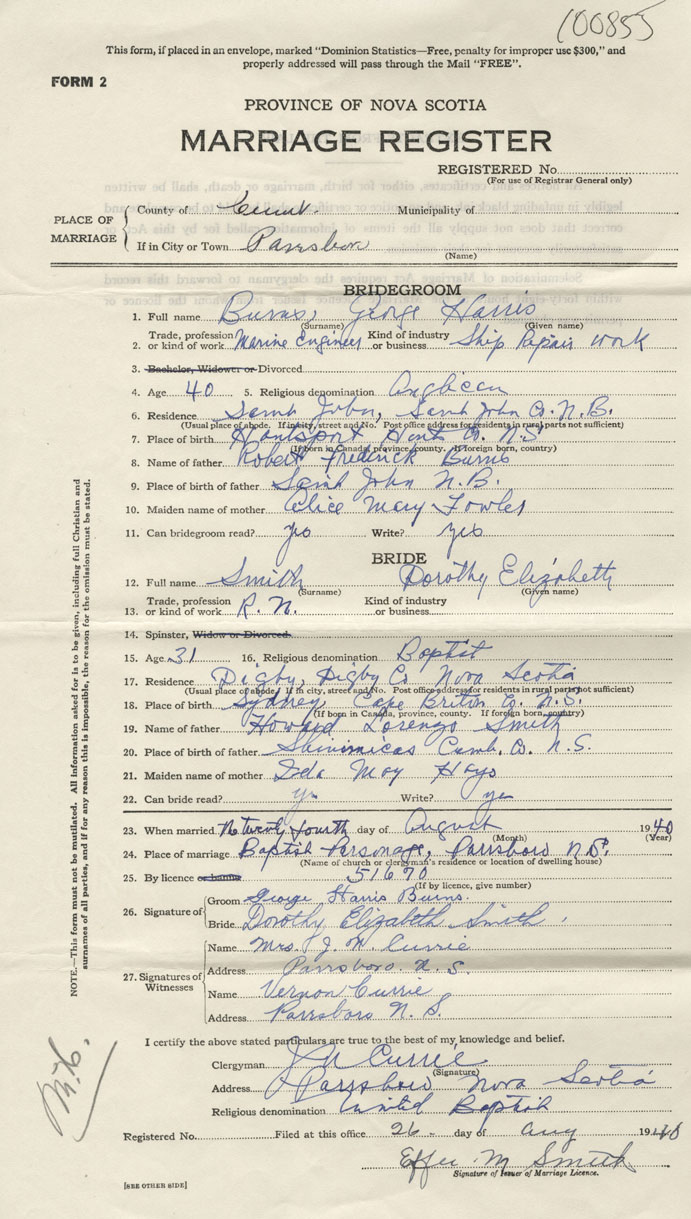 100855
This form, if placed in an envelope, marked "Dominion Statistics—Free, penalty for improper use $300," and
properly addressed will pass through the Mail "FREE".
FORM 2
PROVINCE OF NOVA SCOTIA
MARRIAGE REGISTER
REGISTERED No.
(For use of Registrar General only)
PLACE OF MARRIAGE
County of Cumb. Municipality of
If in City or Town Parrsboro
(Name)
BRIDEGROOM
1. Full name Burns, George Harris
(Surname) (Given name)
2. Trade, profession or kind of work Marine Engineer Kind of industry or business Ship Repair work
3. Bachelor, Widower or Divorced
4. Age 40 5. Religious denomination Anglican
6. Residence Saint John, Saint John Co. N.B.
(Usual place of abode. If in city, street and No. Post office address for residents in rural parts not sufficient)
7. Place of birth Hantsport Hants Co. N.S.
(If born in Canada, province, county. If foreign born, country)
8. Name of father Robert Frederick Burns
9. Place of birth of father Saint John N.B.
10. Maiden name of mother Alice May Fowler
11. Can bridegroom read? yes Write? yes
BRIDE
12. Full name Smith Dorothy Elizabeth
(Surname) (Given name)
13. Trade, profession or kind of work R.N. Kind of industry or business
14. Spinster, Widow or Divorced
15. Age 31 16. Religious denomination Baptist
17. Residence Digby, Digby Co Nova Scotia
(Usual place of abode. If in city, street and No. Post office address for residents in rural parts not sufficient)
18. Place of birth Sydney, Cape Briton Co. N.S.
(If born in Canada, province, county. If foreign born, country)
19. Name of father Howard Lorenzo Smith
20. Place of birth of father Shinimicas Cumb. Co. N.S.
21. Maiden name of mother Ida May Hays
22. Can bride read? yes Write? yes
23. When married twenty fourth day of August 1940
(Month) (Year)
24. Place of marriage Baptist Parsonage, Parrsboro N.S.
(Name of church or clergyman's residence or location of dwelling house)
25. By licence or banns 51670
(If by licence, give number)
26. Signature of
Groom George Harris Burns.
Bride Dorothy Elizabeth Smith
27. Signatures of Witnesses
Name Mrs. J. M. Currie
Address Parrsboro N.S.
Name Vernon Currie
Address Parrsboro N.S.
I certify the above stated particulars are true to the best of my knowledge and belief.
Clergyman J M Currie
(Signature)
Address Parrsboro Nova Scotia
Religious denomination United Baptist
Registered No. Filed at this office 26 day of Aug 1940
Effie M Smith
Signature of Issuer of Marriage Licence.
[SEE OTHER SIDE]
NOTE.—This form must not be mutilated. All information asked for is to be given, including full Christian and
surnames of all parties, and if for any reason this is impossible, the reason for the omission must be stated.